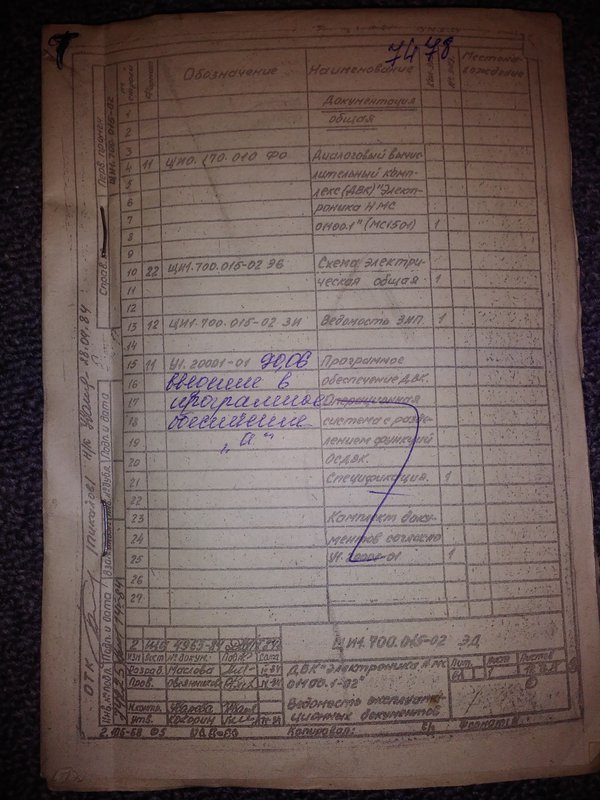 7478
№ строки
Формат
Обозначение
Наименование
Кол. экз.
№ экз.
Местона-
хождение
1 Документация
2 общая
3
4 11 ЩИ0.170.010 ФО Диалоговый вычис-
5 лительный комп-
6 лекс (ДВК) "Элект-
роника НМС
7 01100.1" (МС1501) 1
8
9
10 22 ЩИ1.700.015-02 Э6 Схема электри-
11 ческая общая 1
12
13 12 ЩИ1.700.015-02 ЗИ Ведомость ЗИП 1
14
15 11 У1.20001-01 Програмное
16 введение в обеспечение ДВК.
17 програмное Операционная
18 обеспечение система с разде-
19 „А" лением функций
20 ОСДВК.
21 Спецификация. 1
22
23 Комплект доку-
24 ментов согласно
25 У1.20001-01 1
26
27
Перв. примен.
ЩИ1.700.015-02
Справ. №
Подп. и дата
Подп. и дата
Инв. № подл.
ОТК
18.09.84
2 4963-84
Изм Лист № докум. Подп. Дата
Разраб. Маслова
Пров. Овсянников
Н.контр. Уварова
Утв. Кокорин
ЩИ1.700.015-02 ЭД
ДВК "Электроника НМС
01100.1-02"
Ведомость эксплуата-
ционных документов
Лит. Лист Листов
2.106-68 Ф5
Копировал:
Формат